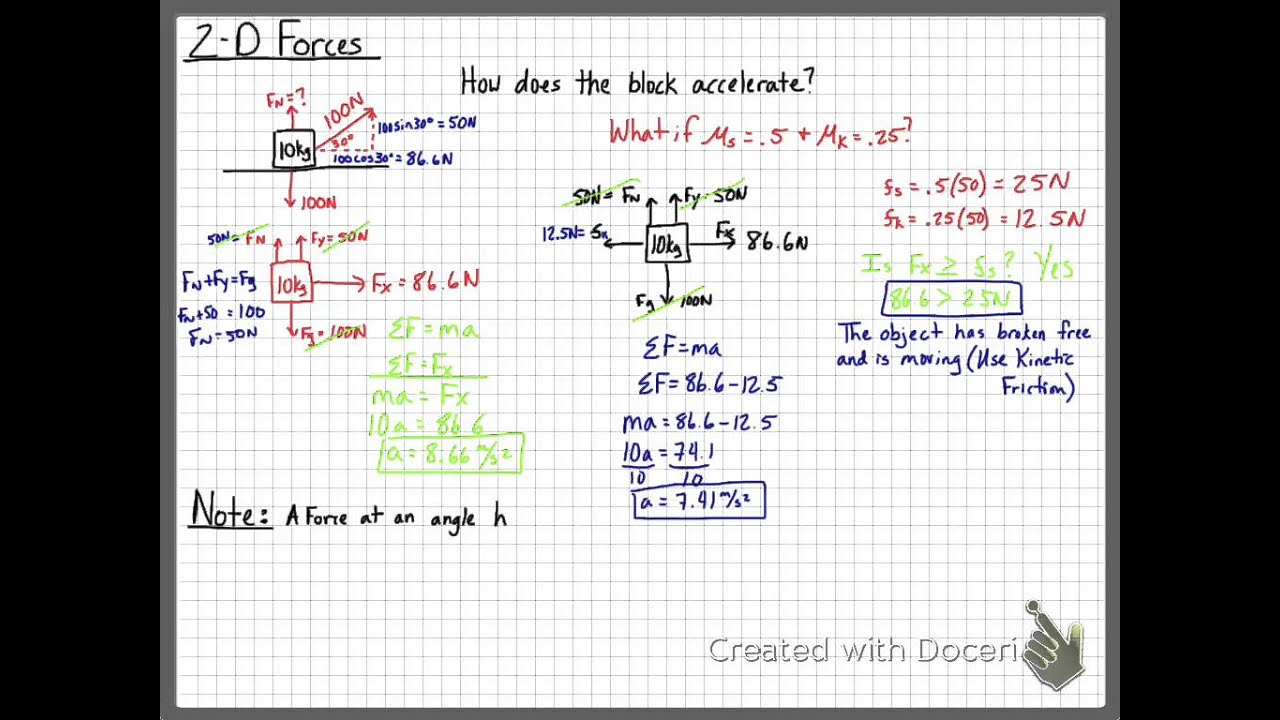 2-D Forces
How does the block accelerate?
What if μs = .5 + μk = .25?
FN = ?
100N
30°
100sin30° = 50N
100cos30° = 86.6N
10kg
100N
50N = FN
Fy = 50N
10kg
Fx = 86.6N
Fg = 100N
FN + Fy = Fg
FN + 50 = 100
FN = 50N
ΣF = ma
ΣF = Fx
ma = Fx
10a = 86.6
a = 8.66 m/s²
50N = FN
Fy = 50N
12.5N = fk
10kg
Fx
86.6N
Fg
100N
ΣF = ma
ΣF = 86.6 - 12.5
ma = 86.6 - 12.5
10a = 74.1
10 10
a = 7.41 m/s²
fs = .5(50) = 25N
fk = .25(50) = 12.5N
Is Fx ≥ fs? Yes
86.6 > 25N
The object has broken free
and is moving (Use Kinetic
Friction)
Note: A Force at an angle h
Created with Doceri